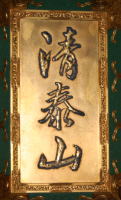 清泰山